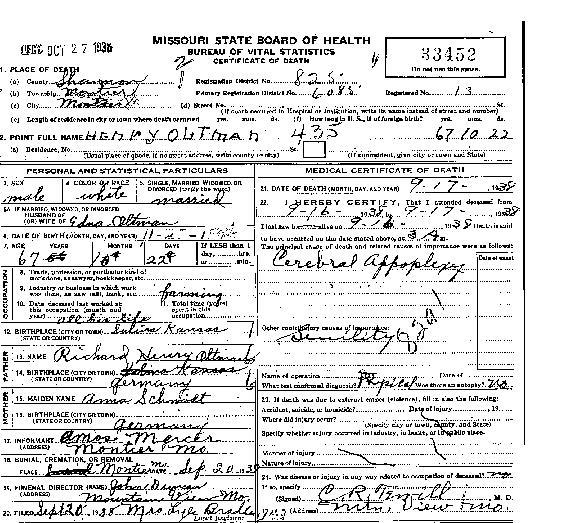 REC'D OCT 27 1938
MISSOURI STATE BOARD OF HEALTH
BUREAU OF VITAL STATISTICS
CERTIFICATE OF DEATH
33452
Do not use this space.
1. PLACE OF DEATH
(a) County Shannon Registration District No. 825
(b) Township Montier Primary Registration District No. 6088 Registered No. 13
(c) City Montier (d) Street No.
(If death occurred in Hospital or Institution, write its name instead of street and number)
(e) Length of residence in city or town where death occurred yrs. mos. ds. (f) How long in U.S., if of foreign birth? yrs. mos. ds.
2. PRINT FULL NAME HENRY OLTMAN 435 67 10 22
(a) Residence, No. St.
(Usual place of abode, if no street address, write county or city) (If nonresident, give city or town and State)
PERSONAL AND STATISTICAL PARTICULARS
3. SEX male
4. COLOR OR RACE white
5. SINGLE, MARRIED, WIDOWED, OR DIVORCED (write the word) married
5A. IF MARRIED, WIDOWED, OR DIVORCED
HUSBAND OF
(OR) WIFE OF Edna Oltman
6. DATE OF BIRTH (MONTH, DAY, AND YEAR) 11-2-
7. AGE YEARS MONTHS DAYS If LESS than 1 day, hrs. or min.
67 10 22
OCCUPATION
8. Trade, profession, or particular kind of work done, as sawyer, bookkeeper, etc.
9. Industry or business in which work was done, as saw mill, bank, etc. farming
10. Date deceased last worked at this occupation (month and year)
11. Total time (years) spent in this occupation
all his life
12. BIRTHPLACE (CITY OR TOWN) Salina Kansas
(STATE OR COUNTRY)
FATHER
13. NAME Richard Henry Oltman
14. BIRTHPLACE (CITY OR TOWN) Salina Kansas
(STATE OR COUNTRY) Germany
MOTHER
15. MAIDEN NAME Anna Schmidt
16. BIRTHPLACE (CITY OR TOWN)
(STATE OR COUNTRY) Germany
17. INFORMANT Amos Mercer
(ADDRESS) Montier Mo.
18. BURIAL, CREMATION, OR REMOVAL
PLACE Montier Mo. Sep 20 1938
19. FUNERAL DIRECTOR (NAME) John Duncan
(ADDRESS) Mountain View Mo.
20. FILED Sept 20 1938 Mrs Lyle
Local Registrar
MEDICAL CERTIFICATE OF DEATH
21. DATE OF DEATH (MONTH, DAY, AND YEAR) 9-17- 1938
22. I HEREBY CERTIFY, That I attended deceased from
9-16- 1938, to 9-17- 1938
I last saw him alive on 9-16- 1938 Death is said
to have occurred on the date stated above, at 3 A m.
The principal cause of death and related causes of importance were as follows:
Date of onset
Cerebral Appoplexy
Other contributory causes of importance:
Senility
Name of operation Date of
What test confirmed diagnosis? Was there an autopsy? no
23. If death was due to external causes (violence), fill in also the following:
Accident, suicide, or homicide? Date of injury , 19
Where did injury occur?
(Specify city or town, county, and State)
Specify whether injury occurred in industry, in home, or in public place.
Manner of injury
Nature of injury
24. Was disease or injury in any way related to occupation of deceased? no
If so, specify
(Signed) C. R. Terrill, M. D.
(Address) Mtn. View Mo.